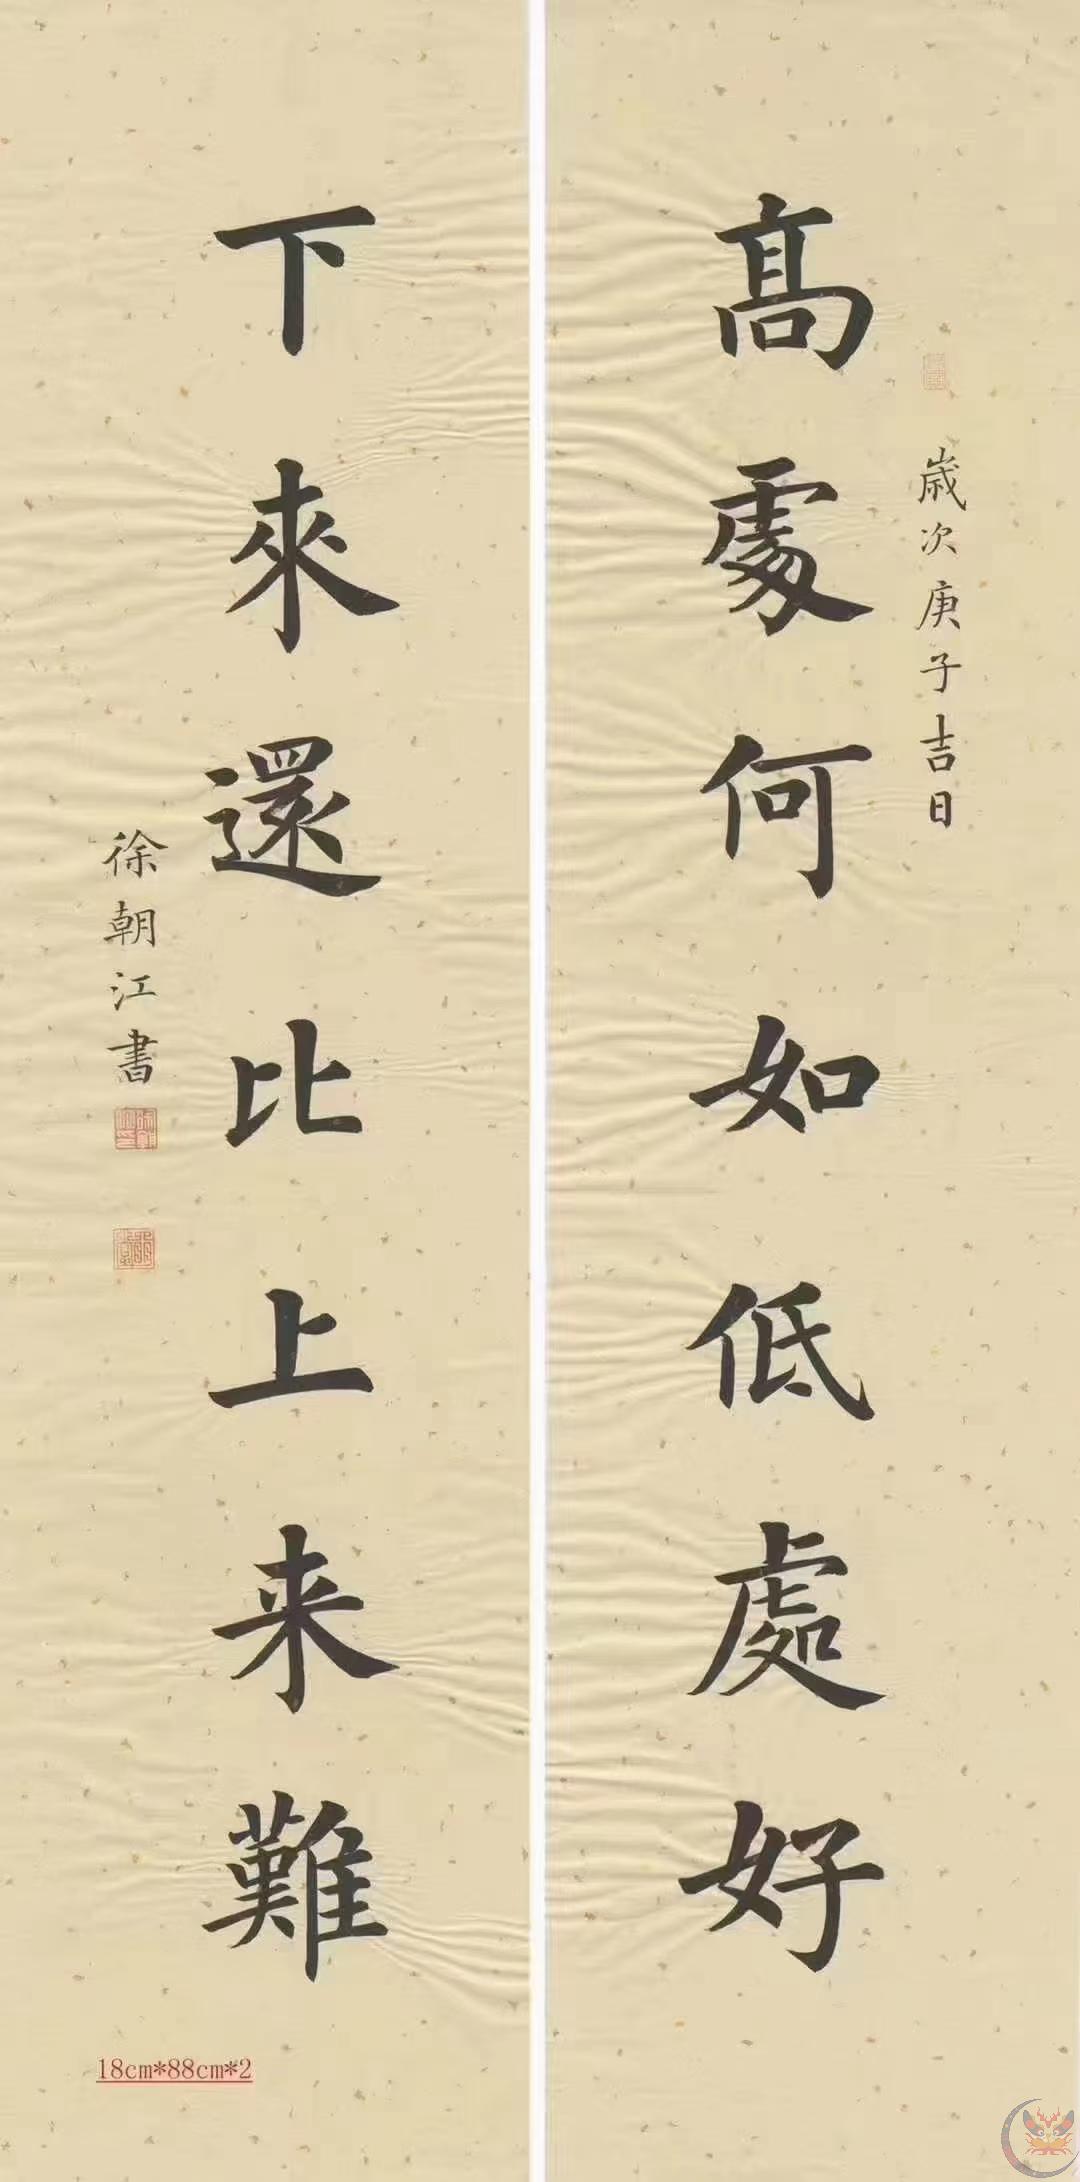 歲次庚子吉日
高處何如低處好
下來還比上来難
徐朝江書
18cm*88cm*2